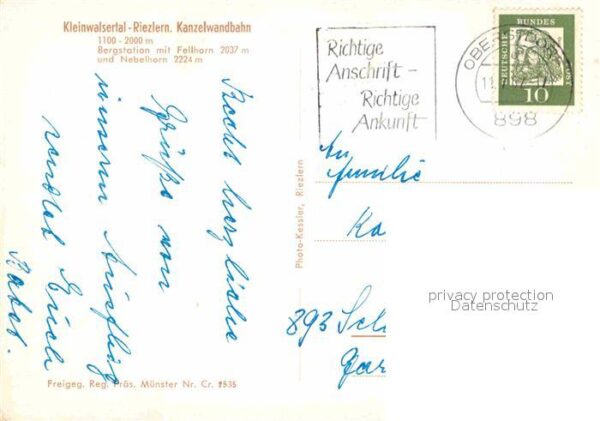 Kleinwalsertal - Riezlern. Kanzelwandbahn
1100 - 2000 m
Bergstation mit Fellhorn 2037 m
und Nebelhorn 2224 m
Recht herzliche
Grüße von
unserm Ausflug
sendet Euch
Freigeg. Reg. Präs. Münster Nr. Cr. 2535
Photo-Kessler, Riezlern
Richtige
Anschrift -
Richtige
Ankunft
898
DEUTSCHE BUNDESPOST
10
An
Familie
Ka
893 Sch
Gar
privacy protection
Datenschutz